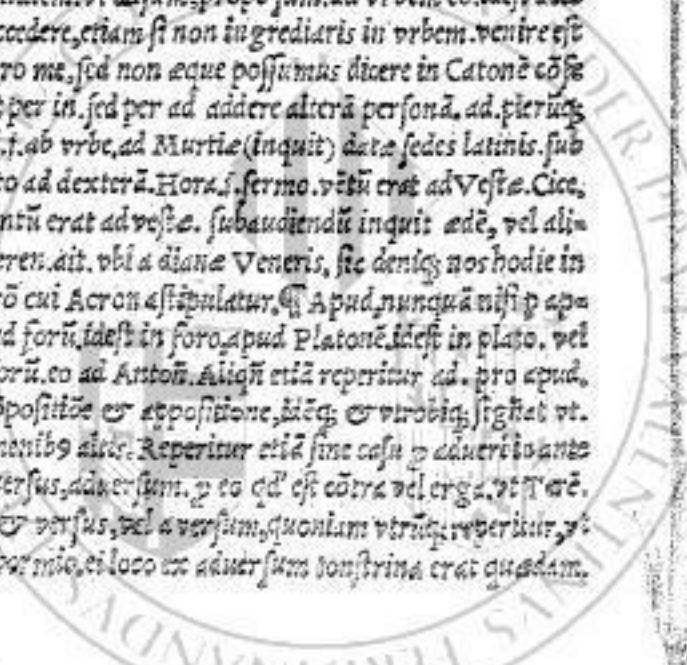 cedere, etiam si non ingrediaris in vrbem. venire est
ro me, sed non æque possumus dicere in Catonē cōse
per in. sed per ad addere alterā personā. ad. pleruq;
.i. ab vrbe, ad Murtiæ (inquit) datæ sedes latinis. sub
to ad dexterā. Hora. j. sermo. vētū erat ad Vestæ. Cice,
ntū erat ad vestæ. subaudiendū inquit ædē, vel ali=
eren. ait. vbi a dianæ Veneris, sic deniq; nos hodie in
rō cui Acron astipulatur. ¶ Apud, nunquā nisi p apa
d forū, idest in foro, apud Platonē, idest in plato. vel
orū. eo ad Antoñ. Aliqñ etiā reperitur ad. pro apud.
positiōe & appositione, idēq; & vtrobiq; signat vt.
menib9 altis. Reperitur etiā sine casu p aduerbio ante
ersus, aduersum. p eo qd' est cōtra vel erga. vt Terē.
& versus, vel a versum, quoniam vtrūq; reperitur, vt
hormio, ei loco ex aduersum tonstrina erat quædam.